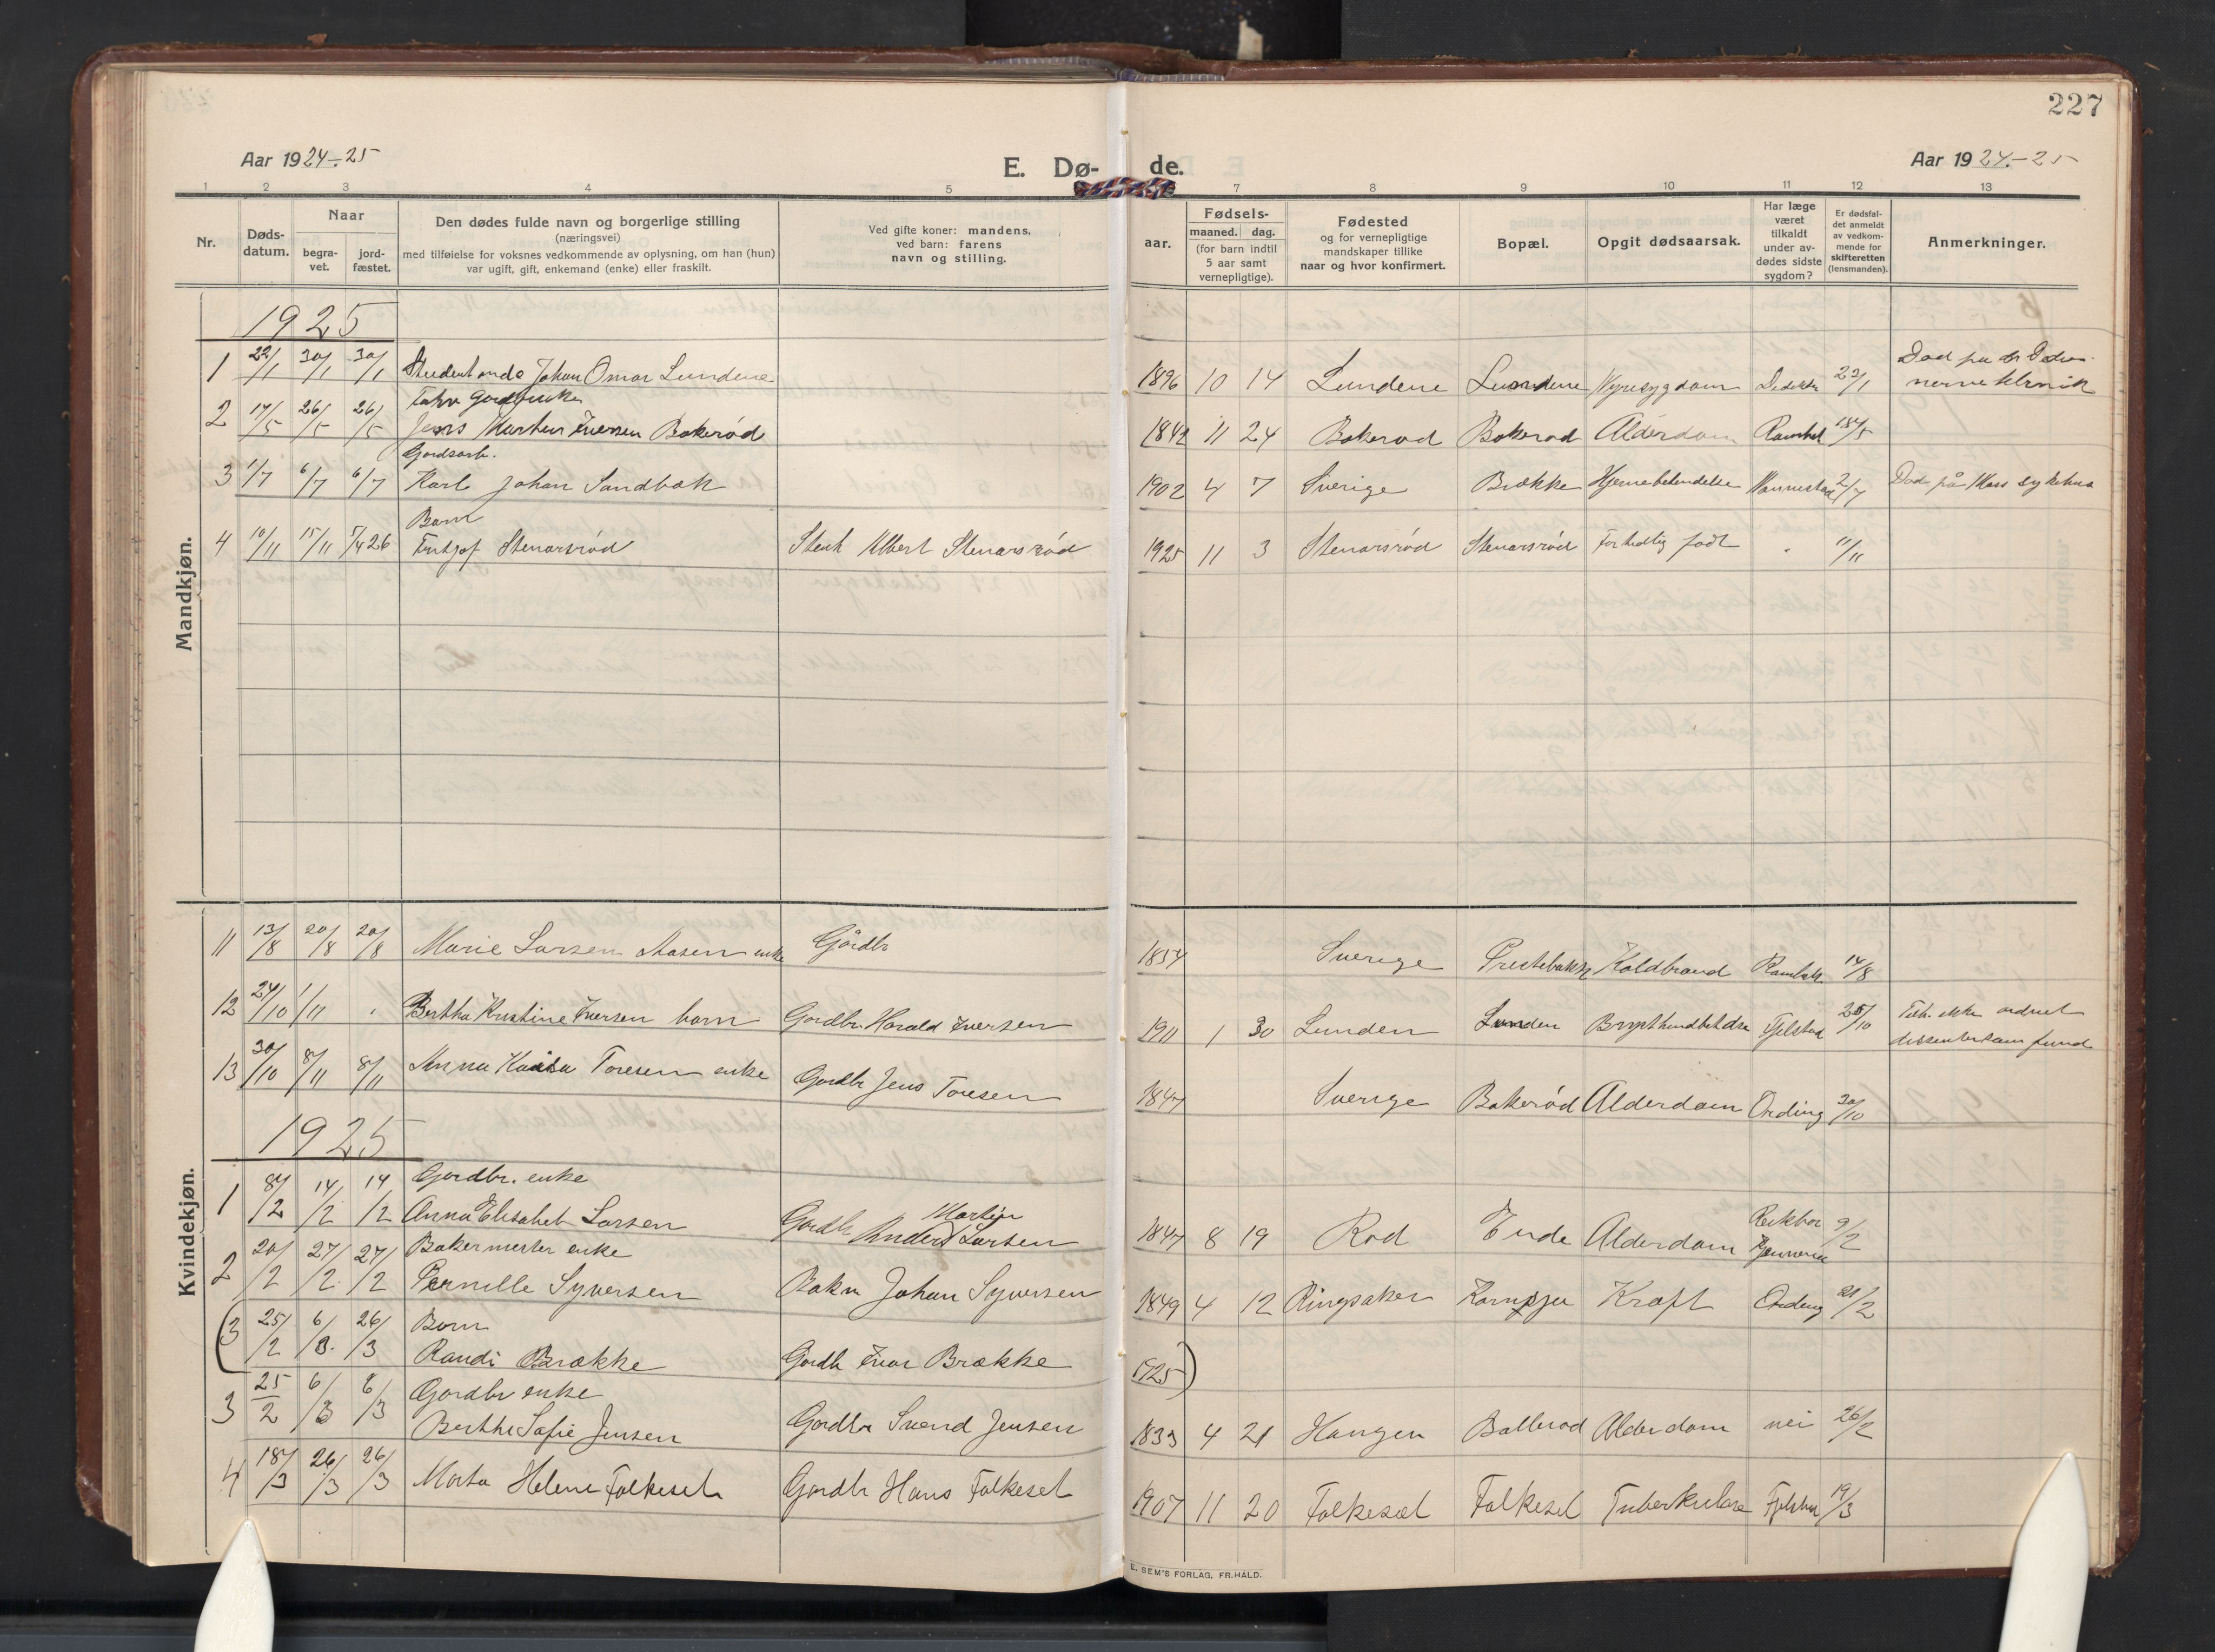 227
Aar 1924-25
E. Dø-
de.
Aar 1924-25
1 2 3 4 5
7 8 9 10 11 12 13
Nr.
Døds-
datum.
Naar
begra-
vet.
jord-
fæstet.
Den dødes fulde navn og borgerlige stilling
(næringsvei)
med tilføielse for voksnes vedkommende av oplysning, om han (hun)
var ugift, gift, enkemand (enke) eller fraskilt.
Ved gifte koner: mandens,
ved barn: farens
navn og stilling.
aar.
Fødsels-
maaned. dag.
(for barn indtil
5 aar samt
vernepligtige).
Fødested
og for vernepligtige
mandskaper tillike
naar og hvor konfirmert.
Bopæl.
Opgit dødsaarsak.
Har læge
været
tilkaldt
under av-
dødes sidste
sygdom?
Er dødsfal-
det anmeldt
av vedkom-
mende for
skifteretten
(lensmanden).
Anmerkninger.
Mandkjøn.
1925
1 22/1 30/1 30/1 Johan Omar Lundene 1896 10 14 Lundene Lundene Nyresygdom 23/1 Død på
2 17/5 26/5 26/5
Jens Iversen Bakerød 1842 11 24 Bakerød Bakerød Alderdom
Gardsarb.
3 1/7 6/7 6/7 Karl Johan Sandbæk 1902 4 7 Sverige Brække Hjernebetendelse 2/7 Død på Moss sykehus
Barn
4 10/11 15/11 7/4 26 Fritjof Stenarsrød Albert Stenarsrød 1925 11 3 Stenarsrød Stenarsrød For tidlig født " 11/11
Kvindekjøn.
11 13/8 20/8 20/8 Marie Larsen enke Gårdbr 1854 Sverige Prestebakke Koldbrand 14/8
12 24/10 1/11 " Bertha Kristine Iversen barn Gardbr. Harald Iversen 1911 1 30 Lunden Lunden Fjelstad 25/10 Tilh. ikke ordnet
dissentersamfund
13 30/10 8/11 8/11 Anna Toresen enke Gardbr Jens Toresen 1847 Sverige Bakerød Alderdom Ording 30/10
1925
Gardbr. enke
1 8/2 14/2 14/2 Anna Elisabet Larsen Gardbr Anders Martin Larsen 1847 8 19 Rød Alderdom 9/2
Bakermester enke
2 20/2 27/2 27/2 Pernille Syversen Baker Johan Syversen 1849 4 12 Ringsaker Kornsjø Kræft Ording 21/2
Barn
(3 25/2 6/3 26/3 Randi Brække Gardbr Ivar Brække 1925)
Gardbr enke
3 25/2 6/3 6/3 Berthe Sofie Jensen Gardbr Svend Jensen 1833 4 21 Haugen Ballerød Alderdom nei 26/2
4 18/3 26/3 26/3 Marta Helene Folkesel Gardbr Hans Folkesel 1907 11 20 Folkesel Folkesel Tuberkulose 19/3
E. SEM'S FORLAG, FR.HALD.